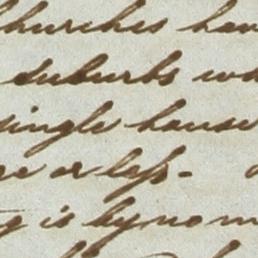 churches hav
suburbs wh
single house
re or less -
g is by no m